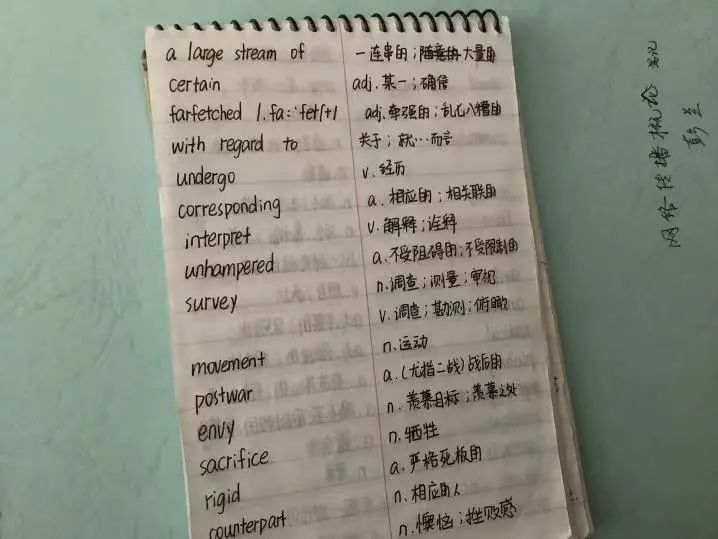 a large stream of 一连串的；随意的大量的
certain adj. 某一；确信
farfetched /.fa:'fetʃt/ adj. 牵强的；乱七八糟的
with regard to 关于；就…而言
undergo v. 经历
corresponding a. 相应的；相关联的
interpret v. 解释；诠释
unhampered a. 不受阻碍的；不受限制的
survey n. 调查；测量；审视
v. 调查；勘测；俯瞰
movement n. 运动
postwar a. (尤指二战)战后的
envy n. 羡慕目标；羡慕之处
sacrifice n. 牺牲
rigid a. 严格死板的
counterpart n. 相应的人
n. 懊恼；挫败感
网络传播概论
彭兰